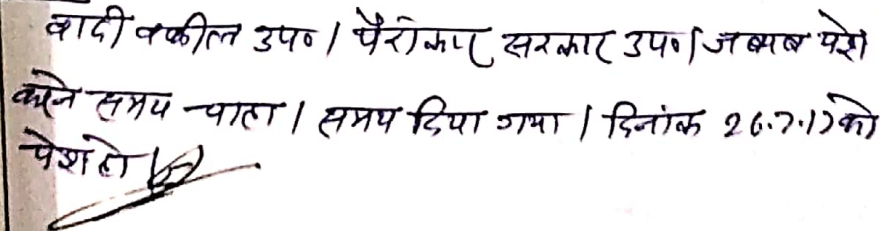 वादी वकील उप० / पैरोकार सरकार उप० / जबाब पेश
करने समय चाहा / समय दिया गया / दिनांक 26.7.17 को
पेश हो